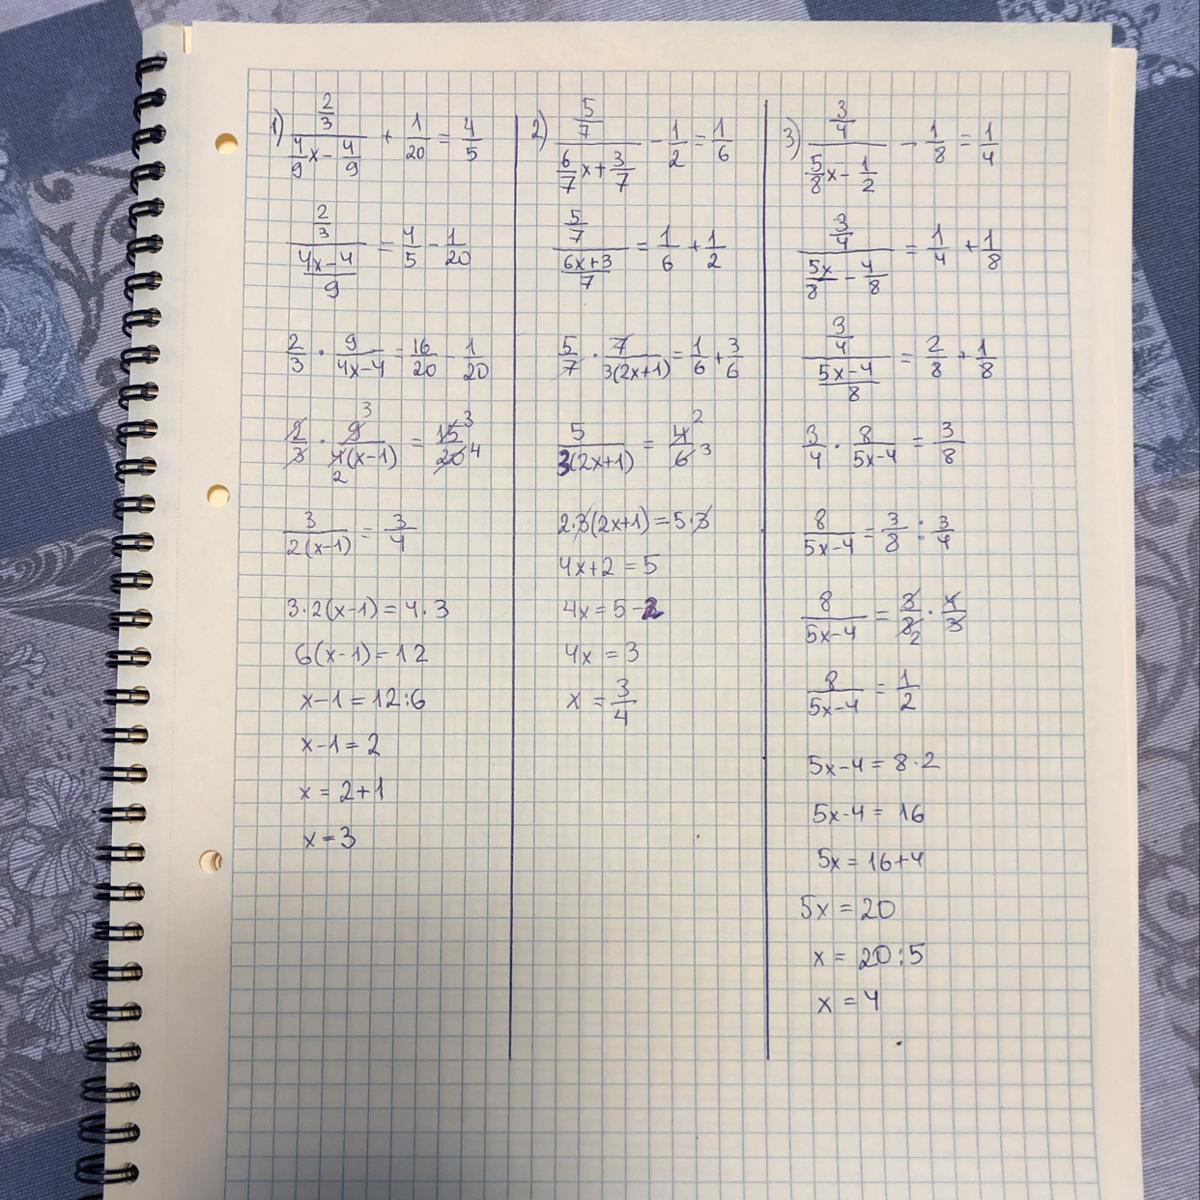 1) (2/3)/(4/9 x - 4/9) + 1/20 = 4/5
(2/3)/((4x-4)/9) = 4/5 - 1/20
2/3 · 9/(4x-4) = 16/20 - 1/20
2/3 · 9/(4(x-1)) = 15/20 3 2 3 4
3/(2(x-1)) = 3/4
3·2(x-1) = 4·3
6(x-1) = 12
x-1 = 12:6
x-1 = 2
x = 2+1
x = 3
2) (5/7)/(6/7 x + 3/7) - 1/2 = 1/6
(5/7)/((6x+3)/7) = 1/6 + 1/2
5/7 · 7/(3(2x+1)) = 1/6 + 3/6
5/(3(2x+1)) = 4/6 2 3
2·3(2x+1) = 5·3
4x+2 = 5
4x = 5-2
4x = 3
x = 3/4
3) (3/4)/(5/8 x - 1/2) - 1/8 = 1/4
(3/4)/(5x/8 - 4/8) = 1/4 + 1/8
(3/4)/((5x-4)/8) = 2/8 + 1/8
3/4 · 8/(5x-4) = 3/8
8/(5x-4) = 3/8 : 3/4
8/(5x-4) = 3/8 · 4/3 2
8/(5x-4) = 1/2
5x-4 = 8·2
5x-4 = 16
5x = 16+4
5x = 20
x = 20:5
x = 4